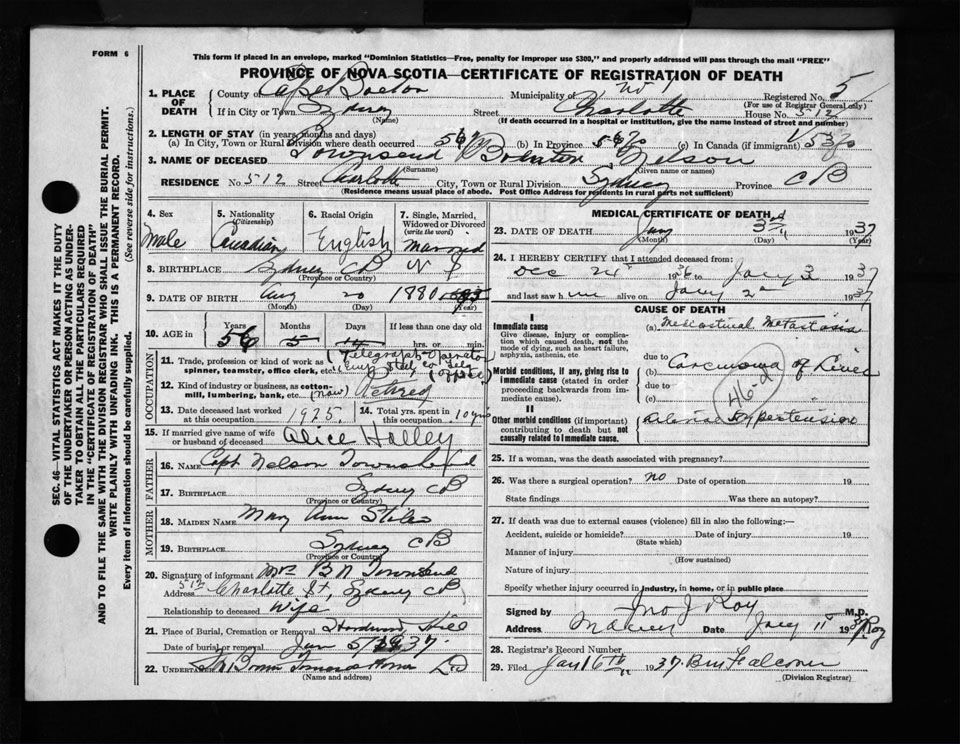 FORM 6
This form if placed in an envelope, marked "Dominion Statistics—Free, penalty for improper use $300," and properly addressed will pass through the mail "FREE"
PROVINCE OF NOVA SCOTIA—CERTIFICATE OF REGISTRATION OF DEATH
SEC. 46—VITAL STATISTICS ACT MAKES IT THE DUTY
OF THE UNDERTAKER OR PERSON ACTING AS UNDER-
TAKER TO OBTAIN ALL THE PARTICULARS REQUIRED
IN THE "CERTIFICATE OF REGISTRATION OF DEATH"
AND TO FILE THE SAME WITH THE DIVISION REGISTRAR WHO SHALL ISSUE THE BURIAL PERMIT.
WRITE PLAINLY WITH UNFADING INK. THIS IS A PERMANENT RECORD.
Every item of information should be carefully supplied. (See reverse side for instructions.)
1. PLACE OF DEATH County of Cape Breton Municipality of No 1 Registered No. 5
(For use of Registrar General only)
If in City or Town Sydney (Name) Street Charlotte House No. 512
(If death occurred in a hospital or institution, give the name instead of street and number)
2. LENGTH OF STAY (in years, months and days)
(a) In City, Town or Rural Division where death occurred (b) In Province (c) In Canada (if immigrant)
3. NAME OF DECEASED Townsend (Surname) Nelson (Given name or names)
RESIDENCE No 512 Street Charlotte City, Town or Rural Division Sydney Province CB
(Residence means usual place of abode. Post Office Address for residents in rural parts not sufficient)
4. Sex Male
5. Nationality (Citizenship) Canadian
6. Racial Origin English
7. Single, Married, Widowed or Divorced (write the word) married
8. BIRTHPLACE Sydney CB N S
9. DATE OF BIRTH Aug (Month) 20 (Day) 1880 (Year)
10. AGE in Years 56 Months 5 Days 14 If less than one day old hrs. or min.
OCCUPATION
11. Trade, profession or kind of work as spinner, teamster, office clerk, etc. Telegraph-Operator
12. Kind of industry or business, as cotton-mill, lumbering, bank, etc. (Now) Retired
13. Date deceased last worked at this occupation 1925. 14. Total yrs. spent in this occupation 10 yrs
15. If married give name of wife or husband of deceased Alice Holley
FATHER
16. NAME Capt Nelson Townsend
17. BIRTHPLACE Sydney CB
(Province or Country)
MOTHER
18. MAIDEN NAME Mary Ann Stiles
19. BIRTHPLACE Sydney CB
(Province or Country)
20. Signature of informant Mrs B N Townsend
Address 512 Charlotte St, Sydney CB
Relationship to deceased Wife
21. Place of Burial, Cremation or Removal Hardwood Hill
Date of burial or removal Jan 5/1937.
22. UNDERTAKER Ltd
(Name and address)
MEDICAL CERTIFICATE OF DEATH
23. DATE OF DEATH Jany (Month) 3rd (Day) 1937 (Year)
24. I HEREBY CERTIFY that I attended deceased from:
Dec 24 1936 to Jany 3 1937
and last saw him alive on Jany 2nd 1937
CAUSE OF DEATH
I
Immediate cause
Give disease, injury or complication which caused death, not the mode of dying, such as heart failure, asphyxia, asthenia, etc
(a) Mediastinal Metastasis
due to
Morbid conditions, if any, giving rise to immediate cause (stated in order proceeding backwards from immediate).
(b) Carcinoma of Liver
due to
(c)
46-
II
Other morbid conditions (if important) contributing to death but not causally related to Immediate cause.
Hypertension
25. If a woman, was the death associated with pregnancy?
26. Was there a surgical operation? No Date of operation 19
State findings Was there an autopsy?
27. If death was due to external causes (violence) fill in also the following:—
Accident, suicide or homicide? Date of injury 19
(State which)
Manner of injury
(How sustained)
Nature of injury
Specify whether injury occurred in industry, in home, or in public place
Signed by Jno J Roy M.D.
Address Date Jany 11 1937 Roy
28. Registrar's Record Number
29. Filed Jany 16th 1937. Falconer
(Division Registrar)